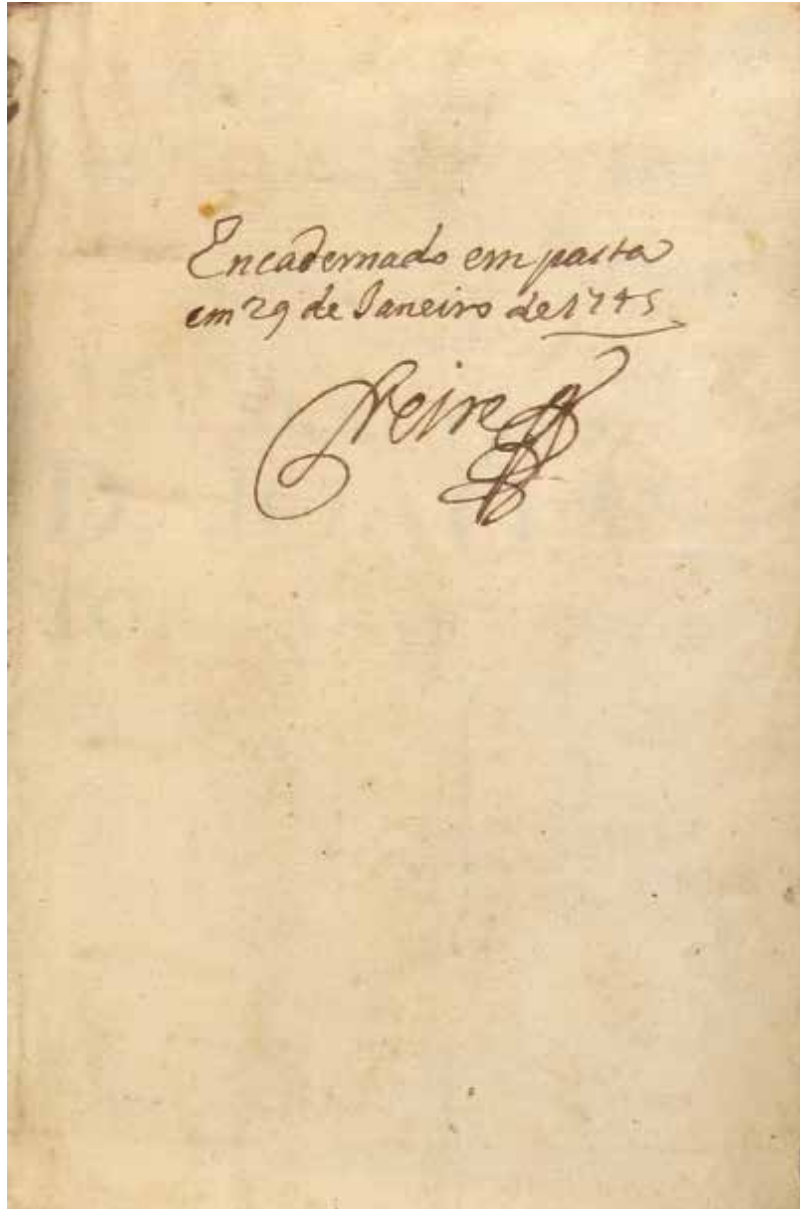 Encadernado em pasta
em 29 de Janeiro de 1745
Freire